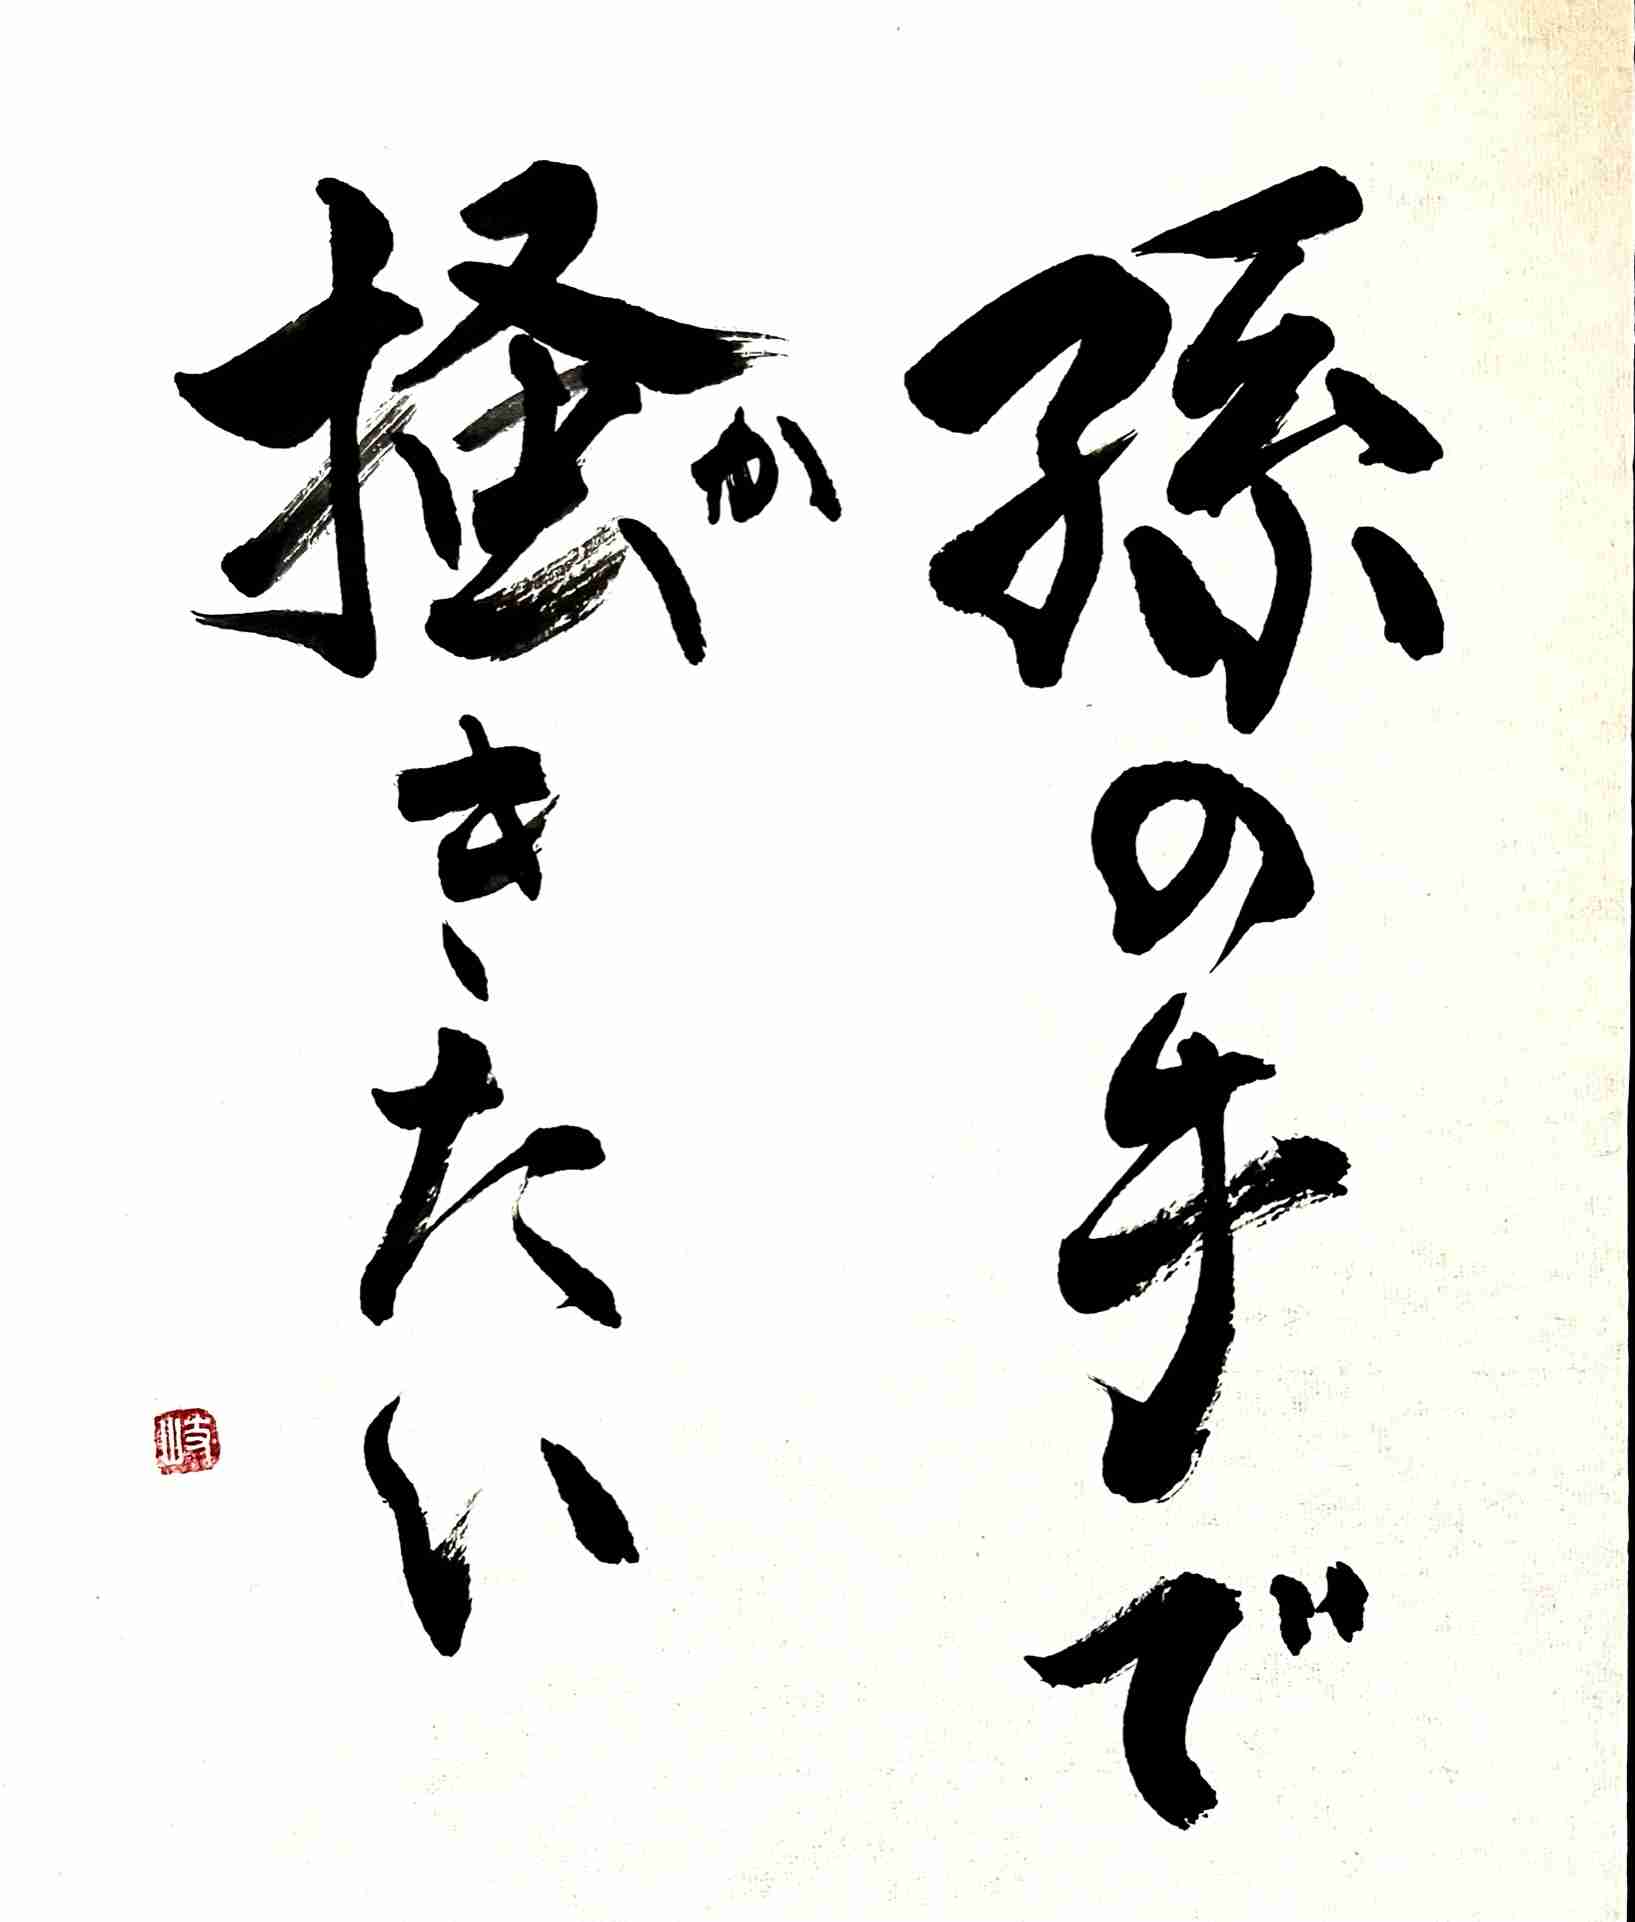 孫の手で
掻きたい
か
岐